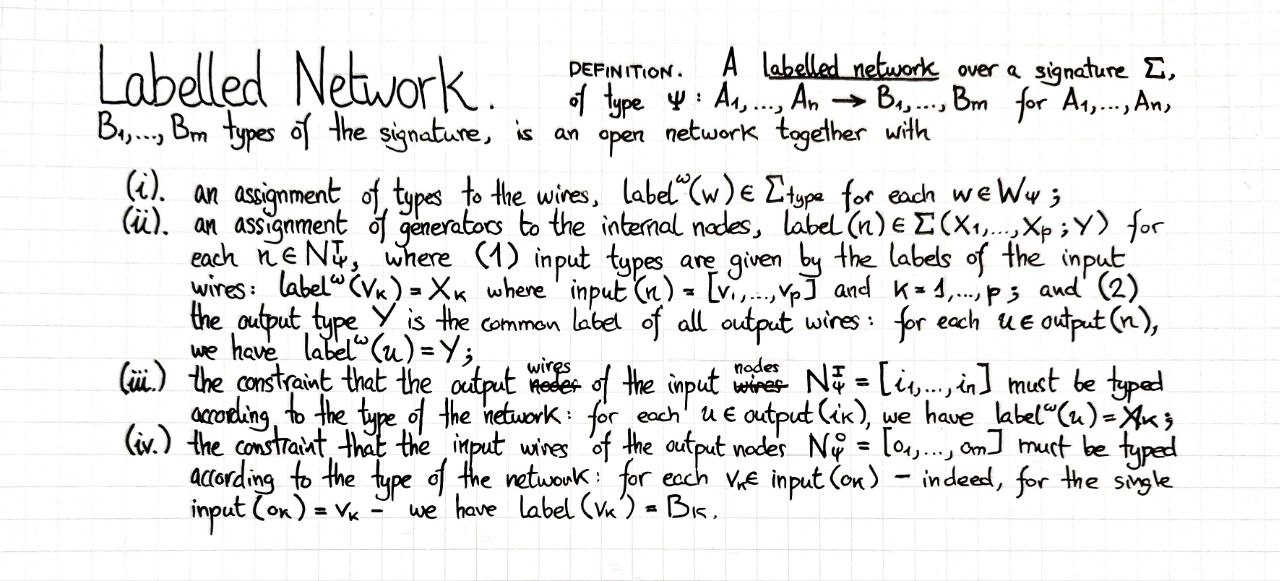 Labelled Network. DEFINITION. A labelled network over a signature Σ,
of type Ψ : A₁,..., Aₙ → B₁,..., Bₘ for A₁,..., Aₙ,
B₁,..., Bₘ types of the signature, is an open network together with
(i). an assignment of types to the wires, labelʷ(w) ∈ Σtype for each w ∈ W_Ψ ;
(ii). an assignment of generators to the internal nodes, label (n) ∈ Σ(X₁,..., Xₚ ; Y) for
each n ∈ Nᴵ_Ψ, where (1) input types are given by the labels of the input
wires: labelʷ(vₖ) = Xₖ where input (n) = [v₁,...,vₚ] and k = 1,..., p ; and (2)
the output type Y is the common label of all output wires: for each u ∈ output(n),
we have labelʷ(u) = Y;
(iii.) the constraint that the output ~~nodes~~ wires of the input ~~wires~~ nodes Nᴵ_Ψ = [i₁,..., iₙ] must be typed
according to the type of the network: for each u ∈ output(iₖ), we have labelʷ(u) = Aₖ;
(iv.) the constraint that the input wires of the output nodes N°_Ψ = [o₁,..., oₘ] must be typed
according to the type of the network: for each vₖ∈ input (oₖ) – indeed, for the single
input (oₖ) = vₖ – we have label (vₖ) = Bₖ.